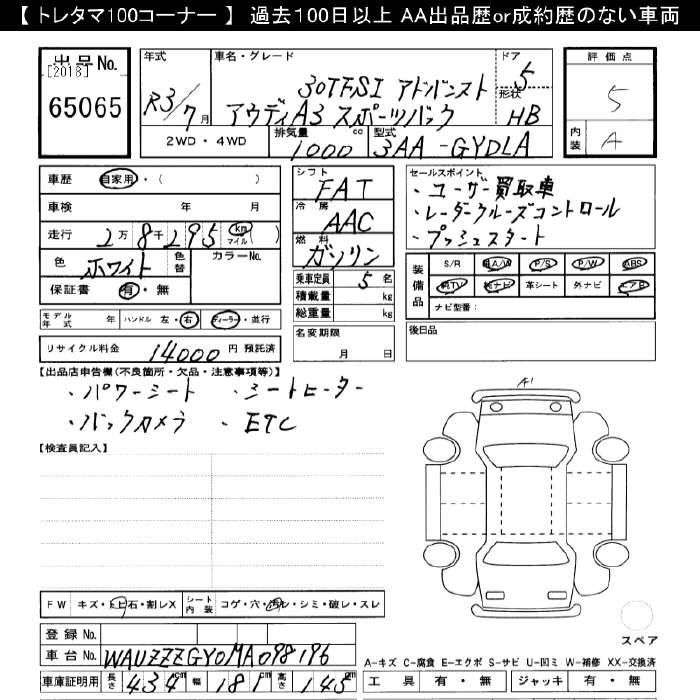 【 トレタマ100コーナー 】 過去100日以上 AA出品歴or成約歴のない車両
出品No.
[2018]
65065
年式
R3/7 月
車名・グレード
30TFSI アドバンスト
アウディA3 スポーツバック
ドア
5
形状
HB
評価点
5
内装
A
2WD・4WD
排気量
1000 cc
型式
3AA-GYDLA
車歴 自家用・( )
車検 年 月
走行 2万8千295 km マイル ( )
色 ホワイト 色替 カラーNo.
保証書 有・無
モデル年式 年 ハンドル 左・右 ディーラー・並行
リサイクル料金 14000 円 預託済
シフト
FAT
冷房
AAC
燃料
ガソリン
乗車定員 5 名
積載量 kg
総重量 kg
名変期限
月 日
セールスポイント
・ユーザー買取車
・レーダークルーズコントロール
・プッシュスタート
装備品
S/R 純A/W P/S P/W ABS
純TV 純ナビ 革シート 外ナビ エアB
ナビ型番:
後日品
【出品店申告欄(不良箇所・欠品・注意事項等)】
・パワーシート ・シートヒーター
・バックカメラ ・ETC
【検査員記入】
A1
FW キズ・トビ石・割レX シート内装 コゲ・穴・汚レ・シミ・破レ・スレ
登録No.
車台No. WAUZZZGY0MA098196
車庫証明用 長さ 434cm 幅 181cm 高さ 145cm
スペア
A-キズ C-腐食 E-エクボ S-サビ U-凹ミ W-補修 XX-交換済
工具 有・無 ジャッキ 有・無